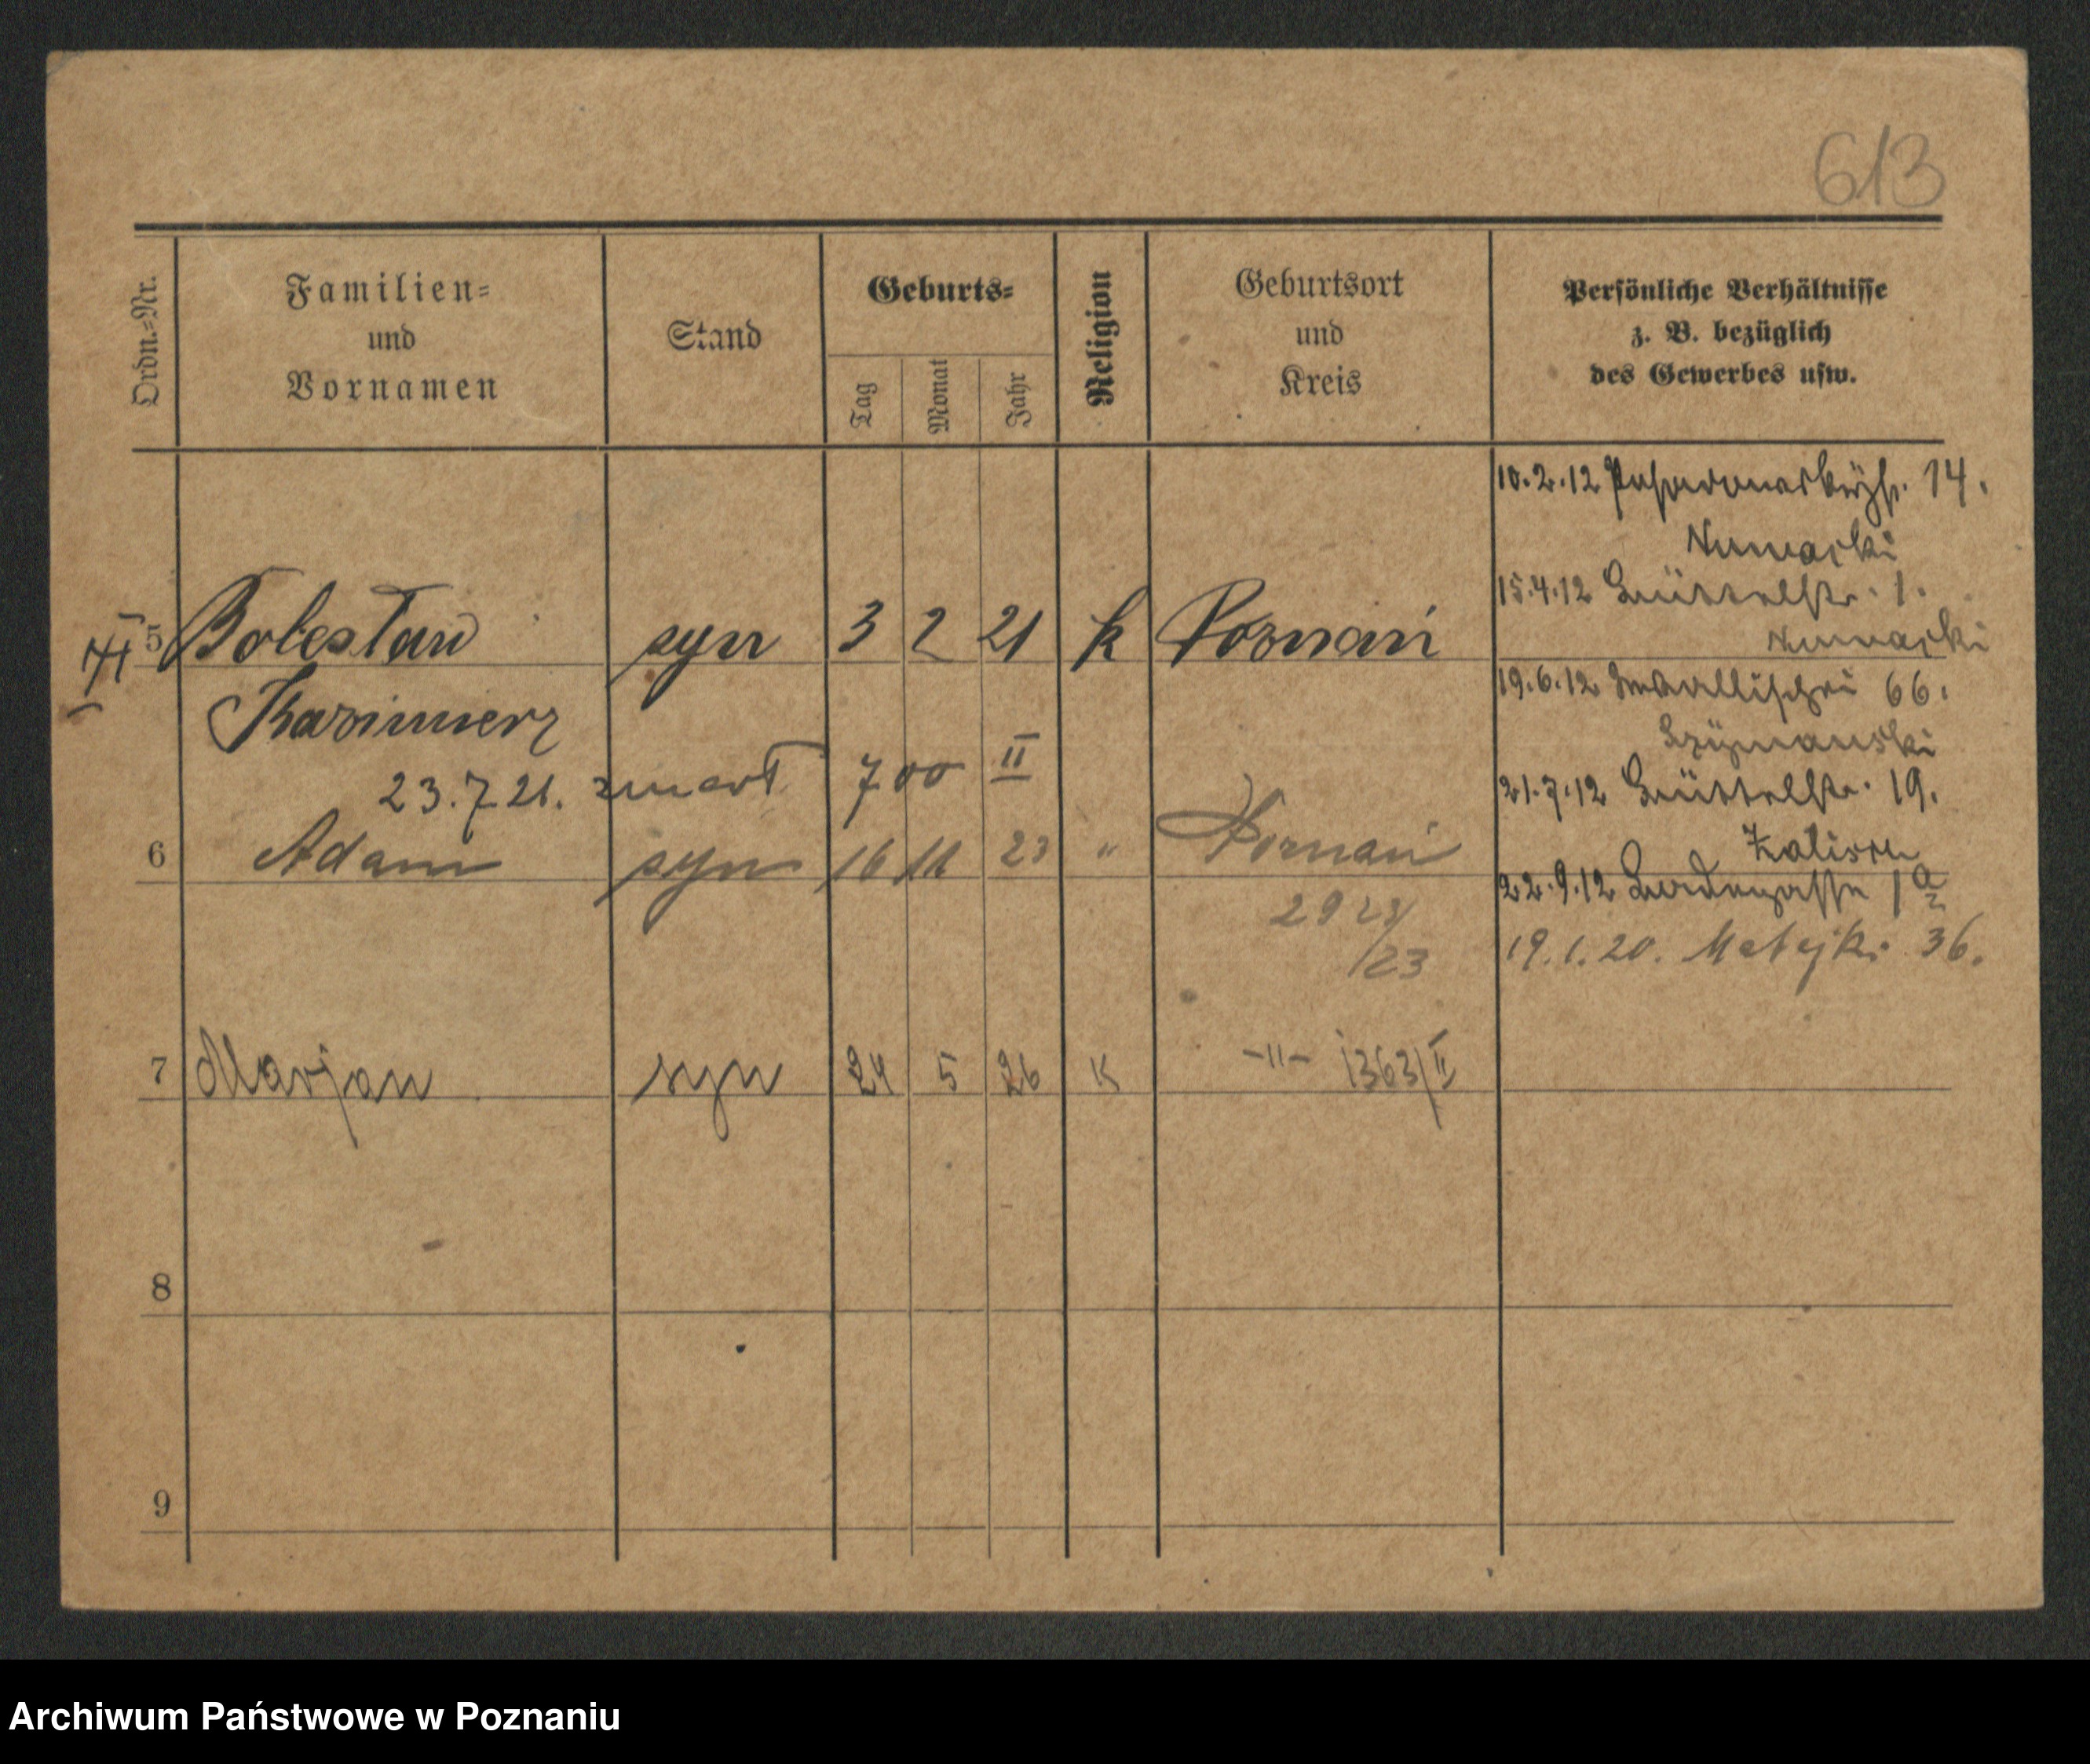 613
Ordn.=Nr.
Familien=
und
Vornamen
Stand
Geburts=
Tag
Monat
Jahr
Religion
Geburtsort
und
Kreis
Persönliche Verhältnisse
z. B. bezüglich
des Gewerbes usw.
10.2.12 14.
15.4.12 1.
5 Bolesław syn 3 2 21 k Poznań
19.6.12 Wallischei 66.
Kazimierz
Szymanski
23.7.21. zmarł 700 II
21.7.12 19.
6 Adam syn 16 11 23 " Poznań
22.9.12 1a
2928/23
19.1.20. Matejki 36.
7 Marjan syn 24 5 26 K -"- 1363/II
8
9
Archiwum Państwowe w Poznaniu